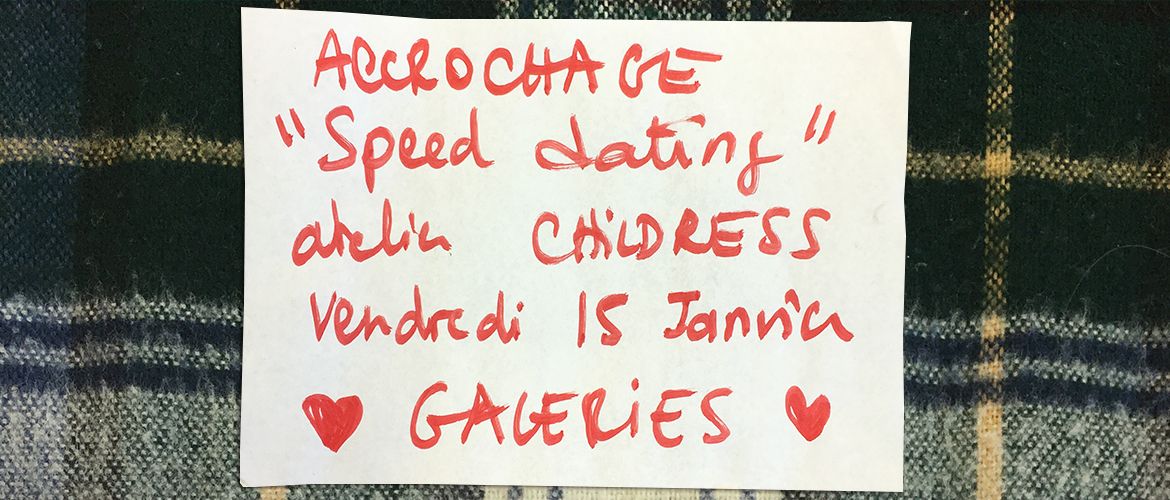 ACCROCHAGE
"Speed dating"
atelier CHiLDRESS
Vendredi 15 Janvier
♥ GALERiES ♥